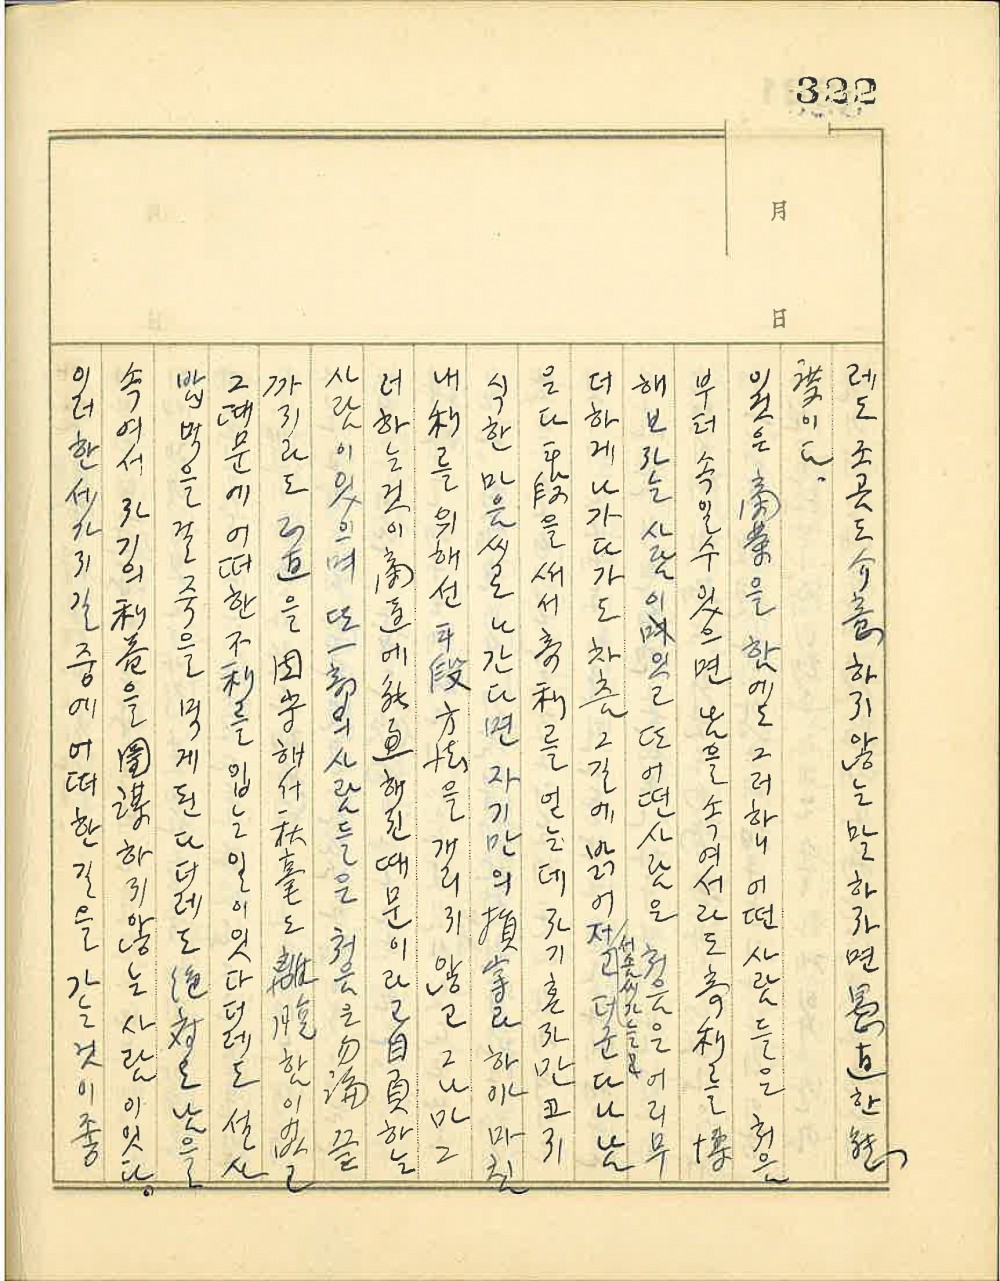 322
月
日
레도 조곰도 介意하지 않는 말하자면 愚直한 態
度이다.
일것은 商業을 함에도 그러하니 어떤 사람들은 처음
부터 속일수 있으면 남을 속여서라도 商利를 博
해 보자는 사람이 있을 또 어떤사람은 처음은 어리무
더하게 나가다가도 차츰 그길에 밝어저고 더군다나 남
은 다 手段을 써서 商利를 얻는데 자기 혼자만 고지
식한 마음씨로 나간다면 자기만의 損害라 하야 마친
내 利를 위해선 手段方法을 개리지 않고 그나마 그
러하는것이 商道에 能通해진 때문이라고 自負하는
사람이 있으며 또 一部의 사람들은 처음은 勿論 끝
까지라도 正道을 固守해서 秋毫도 離脫함이 없고
그때문에 어떠한 不利를 입는 일이 있다더레도 설사
밥먹을걸 죽을 먹게 된다더레도 絶対로 남을
속여서 자기의 利益을 圖謀하지 않는 사람이 있다.
이러한 세가지 길중에 어떠한 길을 가는 것이 좋